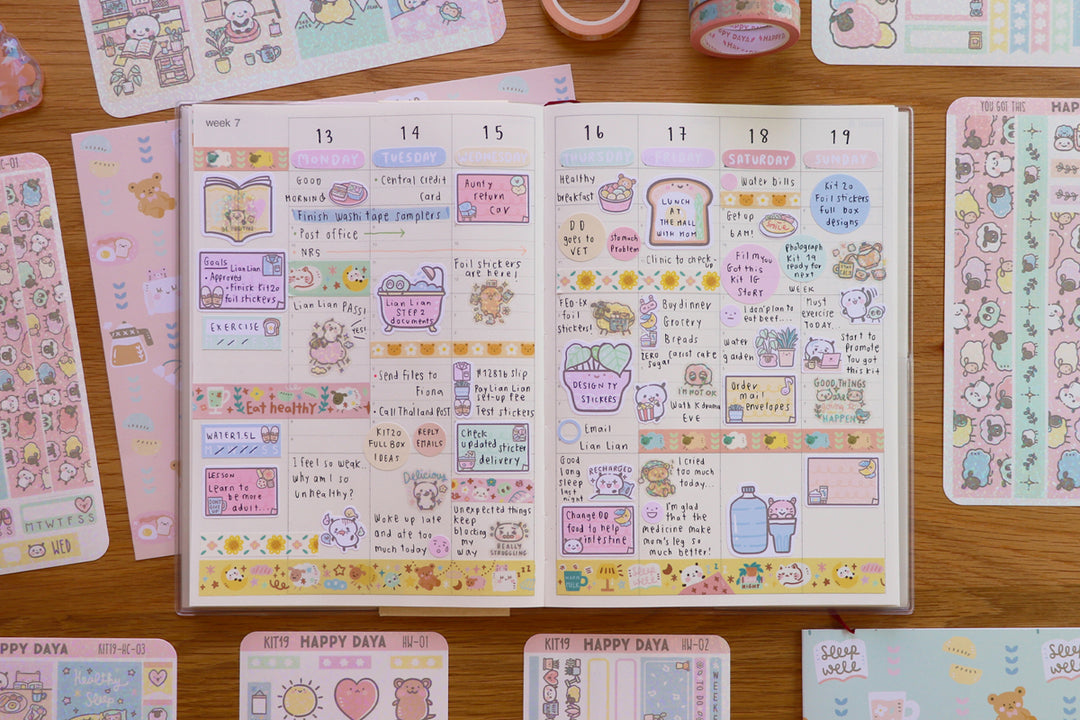 HAPPY DAYA
YOU GOT THIS
week 7
13
14
15
16
17
18
19
MONDAY
TUESDAY
WEDNESDAY
THURSDAY
FRIDAY
SATURDAY
SUNDAY
Goals
Lian Lian
• Approved
• Finish Kit20
foil stickers
EXERCISE
WATER 1.5L
M
S S
LESSON
Learn to
be more
adult...
GOOD
MORNING
Finish washi tape samplers
• Post office
NRS
Lian Lian PASS!
YES!
Eat healthy
I feel so weak..
why am I so
unhealthy?
• Central Credit
Card
Lian Lian
STEP 2
documents
• Send files to
Fiona
• Call Thailand POST
KIT20
FULL BOX
IDEAS
REPLY
EMAILS
Delicious
Woke up late
and ate too
much today
Aunty
return
car
Foil stickers
are here!
#128TB slip
Pay Lian Lian
set-up fee
Test stickers
Check
updated sticker
delivery
Unexpected things
keep
blocking
my
way
REALLY
STRUGGLING
Healthy
breakfast
DD
goes to
VET
Stomach
Problem
FED-EX
foil
stickers!
DESIGN TY
STICKERS
Email
Lian Lian
Good
long
sleep
last
night
RECHARGED
Change DD
food to help
intestine
LUNCH
AT
THE MALL
WITH MOM
Clinic to check-up
Buy dinner
Grocery
Breads
ZERO
Sugar
Carrot cake
I'M NOT OK
With Kamma
Eve
I cried
too much
today...
I'm glad
that the
medicine make
mom's leg so
much better!
Water bills
Get up
6AM!
Smile
Fil My
Got this
Kit IG
STORY
Photograph
Kit 19
ready for
next
WEEK
I don't plan to
eat beef....
Water
garden
Order
mail
envelopes
Kit 20
Foil stickers
full box
designs
STAY CALM
Must
exercise
TODAY...
Start to
promote
You got
this kit
GOOD THINGS
HAPPEN
WARM
MILK
NIGHT
MTWTFSS
WED
HAPPY DAYA
KIT19-HC-03
Healthy
Sleep
KIT19
HAPPY DAYA
HW-01
KIT19
HAPPY DAYA
HW-02
TO DO
WEEKE
Sleep
well
Sleep
well